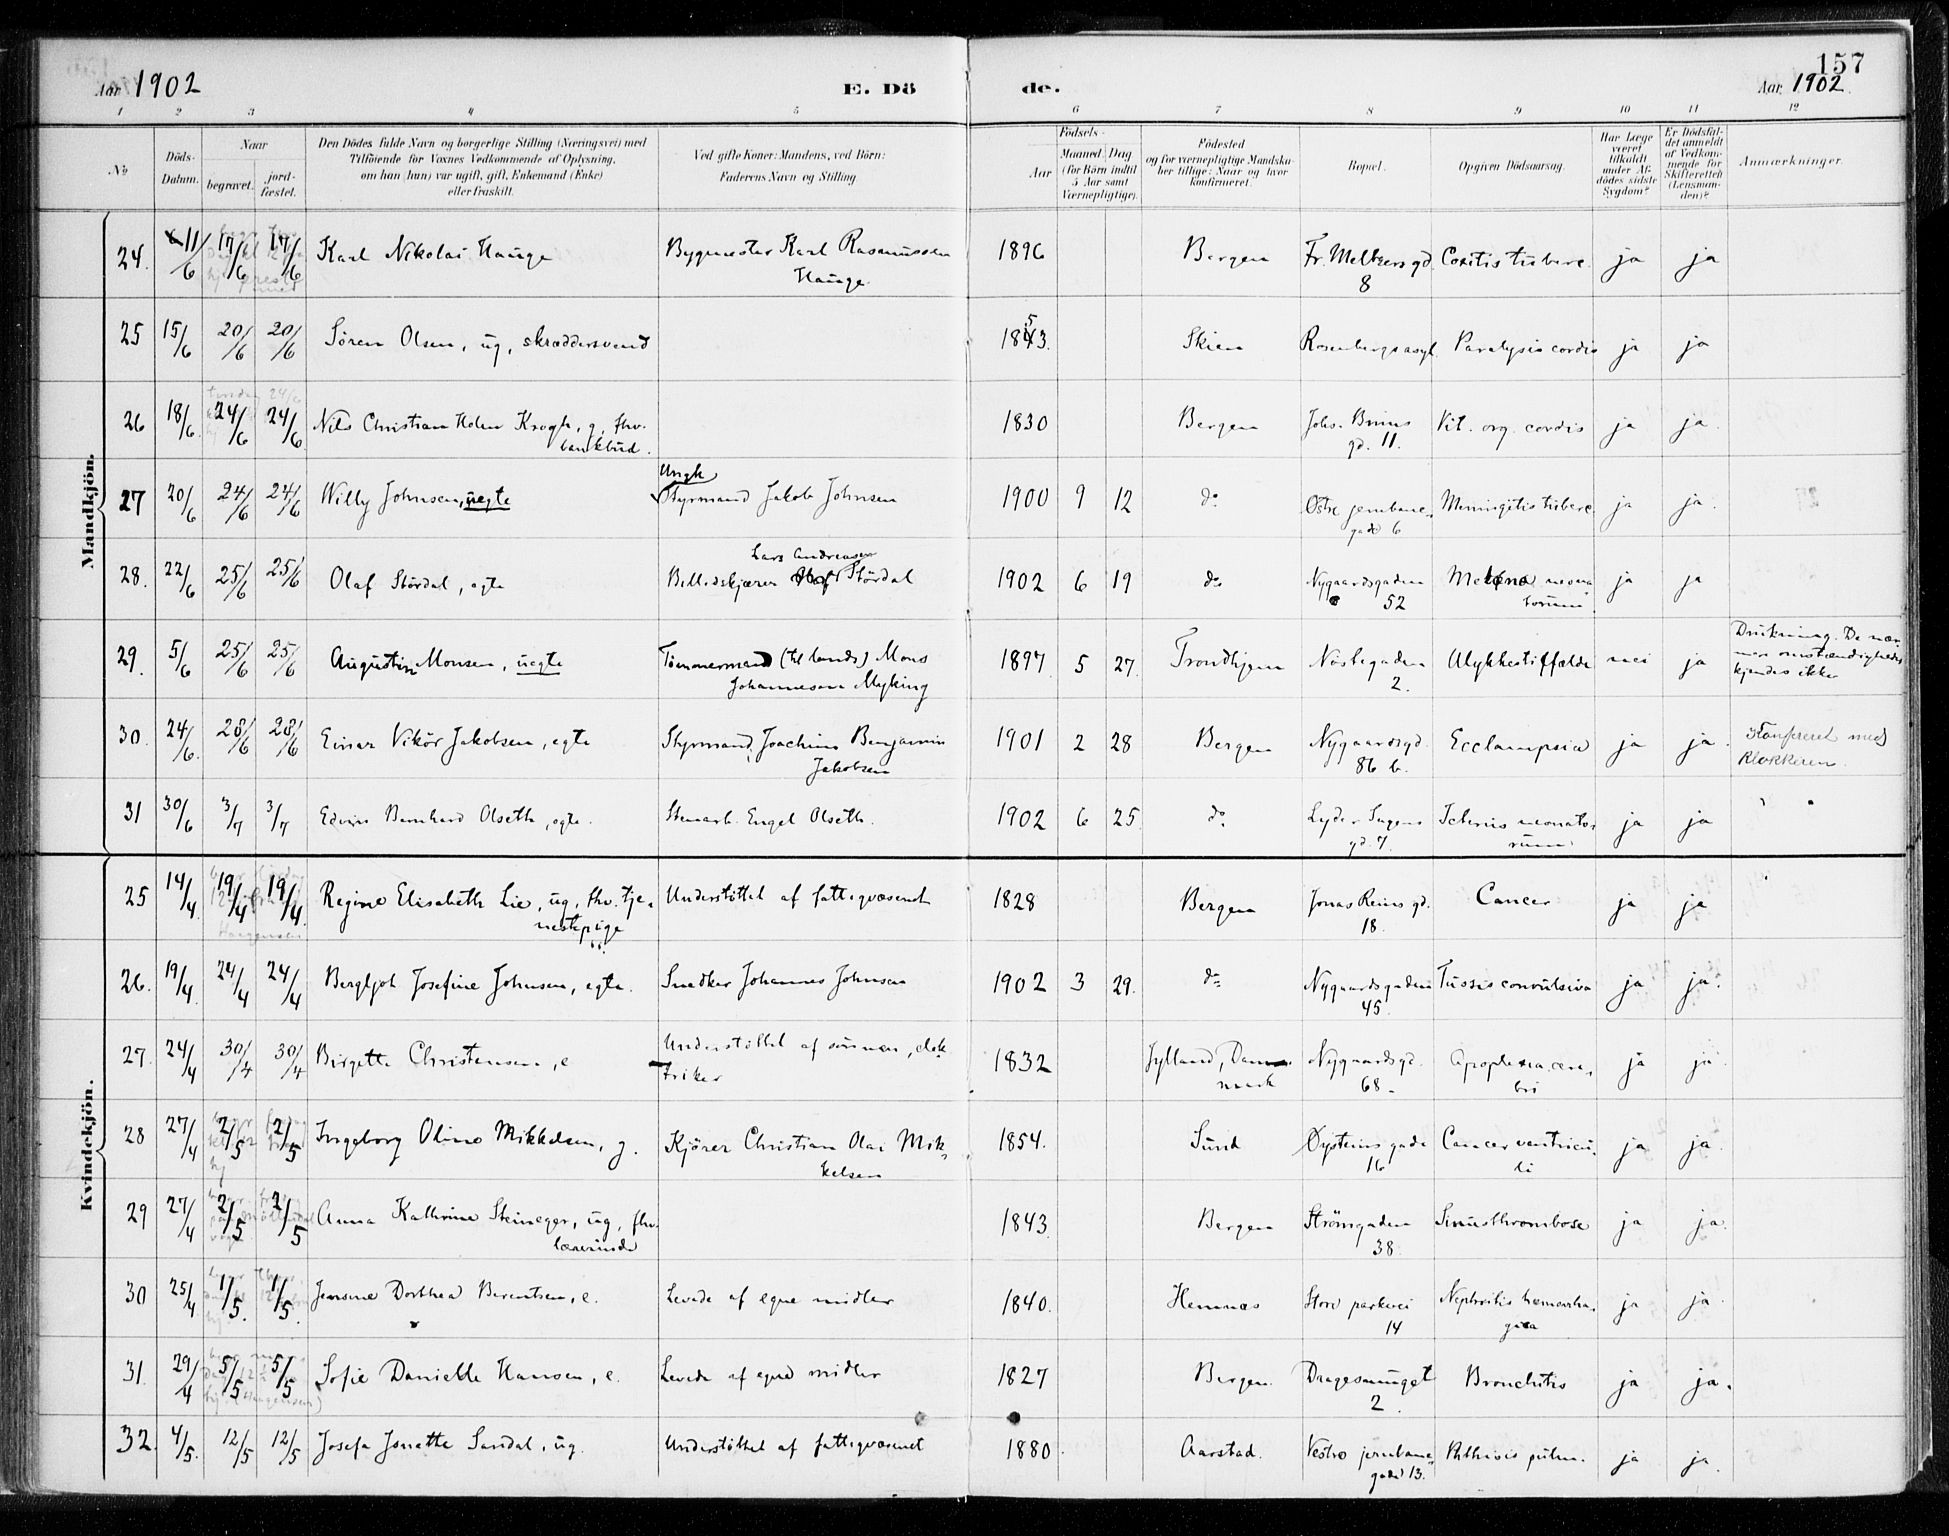 Aar 1902
E. Dö de.
157
Aar 1902
1 2 3 4 5 6 7 8 9 10 11 12
No
Döds-Datum.
Naar
begravet.
jord-fæstet.
Den Dödes fulde Navn og borgerlige Stilling (Næringsvei) med
Tilföiende for Voxnes Vedkommende af Oplysning,
om han (hun) var ugift, gift, Enkemand (Enke)
eller fraskilt.
Ved gifte Koner: Mandens, ved Börn:
Faderens Navn og Stilling
Födsels-
Aar
Maaned Dag
(for Börn indtil
5 Aar samt
Værnepligtige).
Födested
og for værnepligtige Mandska-
ber tillige: Naar og hvor
konfirmeret.
Bopæl.
Opgiven Dödsaarsag.
Har Læge
været
tilkaldt
under Af-
dödes sidste
Sygdom?
Er Dödsfal-
det anmeldt
af Vedkom-
mende for
Skifteretten
(Lensman-
den)?
Anmærkninger.
Mandkjön.
24. 11/6 17/6 17/6 Karl Nikolai Hauge Bygmester Karl Rasmussen 1896 Bergen Fr. Meltzers gd. Coxitis tuberc. ja ja
Hauge. 8
25 15/6 20/6 20/6 Sören Olsen, ug, skræddersvend 1853. Skien Rosenbergs asyl Paralysis cordis ja ja
26 18/6 24/6 24/6 Nils Christian Holm Krogh, g, fhv. 1830 Bergen Johs. Bruns Vit. org. cordis ja ja.
bankbud. gd. 11.
Ungk
27 20/6 24/6 24/6 Willy Johnsen, uegte Styrmand Jakob Johnsen 1900 9 12 do Östre jernbane- Meningitis tuberc. ja ja.
gade 6
Lars Andreasen
28. 22/6 25/6 25/6 Olaf Stördal, egte Billedskjærer Stördal 1902 6 19 do Nygaardsgaden Melæna neona- ja ja
52 torum
29. 5/6 25/6 25/6 Augustin Monsen, uegte Tömmermand (til lands) Mons 1897 5 27. Trondhjem Nöstegaden Ulykkestilfælde nei ja Drukning. De nær-
Johannesen Myking 2. mere omstændigheder
kjendes ikke
30. 24/6. 28/6 28/6 Einar Vikör Jakobsen, egte Styrmand Joachim Benjamin 1901 2 28 Bergen Nygaardsgd. Ecclampsia ja ja. Konfereret med
Jakobsen 86 b. Klokkeren.
31 30/6 3/7 3/7 Edvin Bernhard Olseth, egte. Stenarb. Engel Olseth. 1902 6 25. do Lyder Sagens Icterus neonato- ja ja
gd. 7. rum
Kvindekjön.
25 14/4 19/4 19/4 Regine Elisabeth Lie, ug, fhv. tje- Understöttet af fattigvæsenet 1828 Bergen Jonas Reins gd. Cancer ja ja
nestepige 18.
26. 19/4 24/4 24/4 Bergljot Josefine Johnsen, egte. Snedker Johannes Johnsen 1902 3 29. do Nygaardsgaden Tussis convulsiva ja ja.
45.
27. 24/4 30/4 30/4 Birgette Christensen, e Understöttet af sönnen, elek- 1832 Jylland, Dan- Nygaardsgd. Apoplexia cere- ja ja
triker mark 68- bri
28 27/4 2/5 2/5 Ingeborg Oline Mikkelsen, g. Kjörer Christian Olai Mik- 1854. Sund Öysteins gade Cancer ventricu- ja ja.
kelsen 16 li
29 27/4 2/5 2/5 Anna Kathrine Steineger, ug, fhv. 1843. Bergen Strömgaden Sinusthrombose ja ja.
lærerinde 38.
30 25/4 1/5. 1/5. Jensine Dorthea Berentsen, e. Levede af egne midler 1840. Hemnæs Store parkvei Nephritis hæmorrha- ja ja
14 gica
31. 29/4 5/5 5/5 Sofie Danielle Hansen, e. Levede af egne midler 1827 Bergen. Dragesmuget Bronchitis ja ja.
2.
32. 4/5. 12/5 12/5 Josefa Jonette Sandal, ug. Understöttet af fattigvæsenet 1880. Aarstad. Vestre jernbane- Phthisis pulm. ja ja.
gade 13.